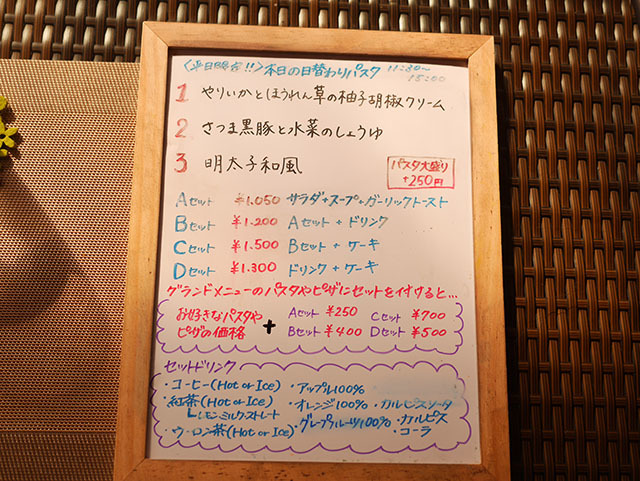 〈平日限定!!〉本日の日替わりパスタ 11:30〜15:00
1 やりいかとほうれん草の柚子胡椒クリーム
2 さつま黒豚と水菜のしょうゆ
3 明太子和風
パスタ大盛り
+250円
Aセット ¥1.050 サラダ+スープ+ガーリックトースト
Bセット ¥1.200 Aセット + ドリンク
Cセット ¥1.500 Bセット + ケーキ
Dセット ¥1.300 ドリンク + ケーキ
グランドメニューのパスタやピザにセットを付けると…
お好きなパスタや
ピザの価格
+
Aセット ¥250 Cセット ¥700
Bセット ¥400 Dセット ¥500
セットドリンク
・コーヒー(Hot or Ice) ・アップル100%
・紅茶(Hot or Ice) ・オレンジ100% ・カルピスソーダ
レモン・ミルク・ストレート ・グレープフルーツ100% ・カルピス
・ウーロン茶(Hot or Ice) ・コーラ